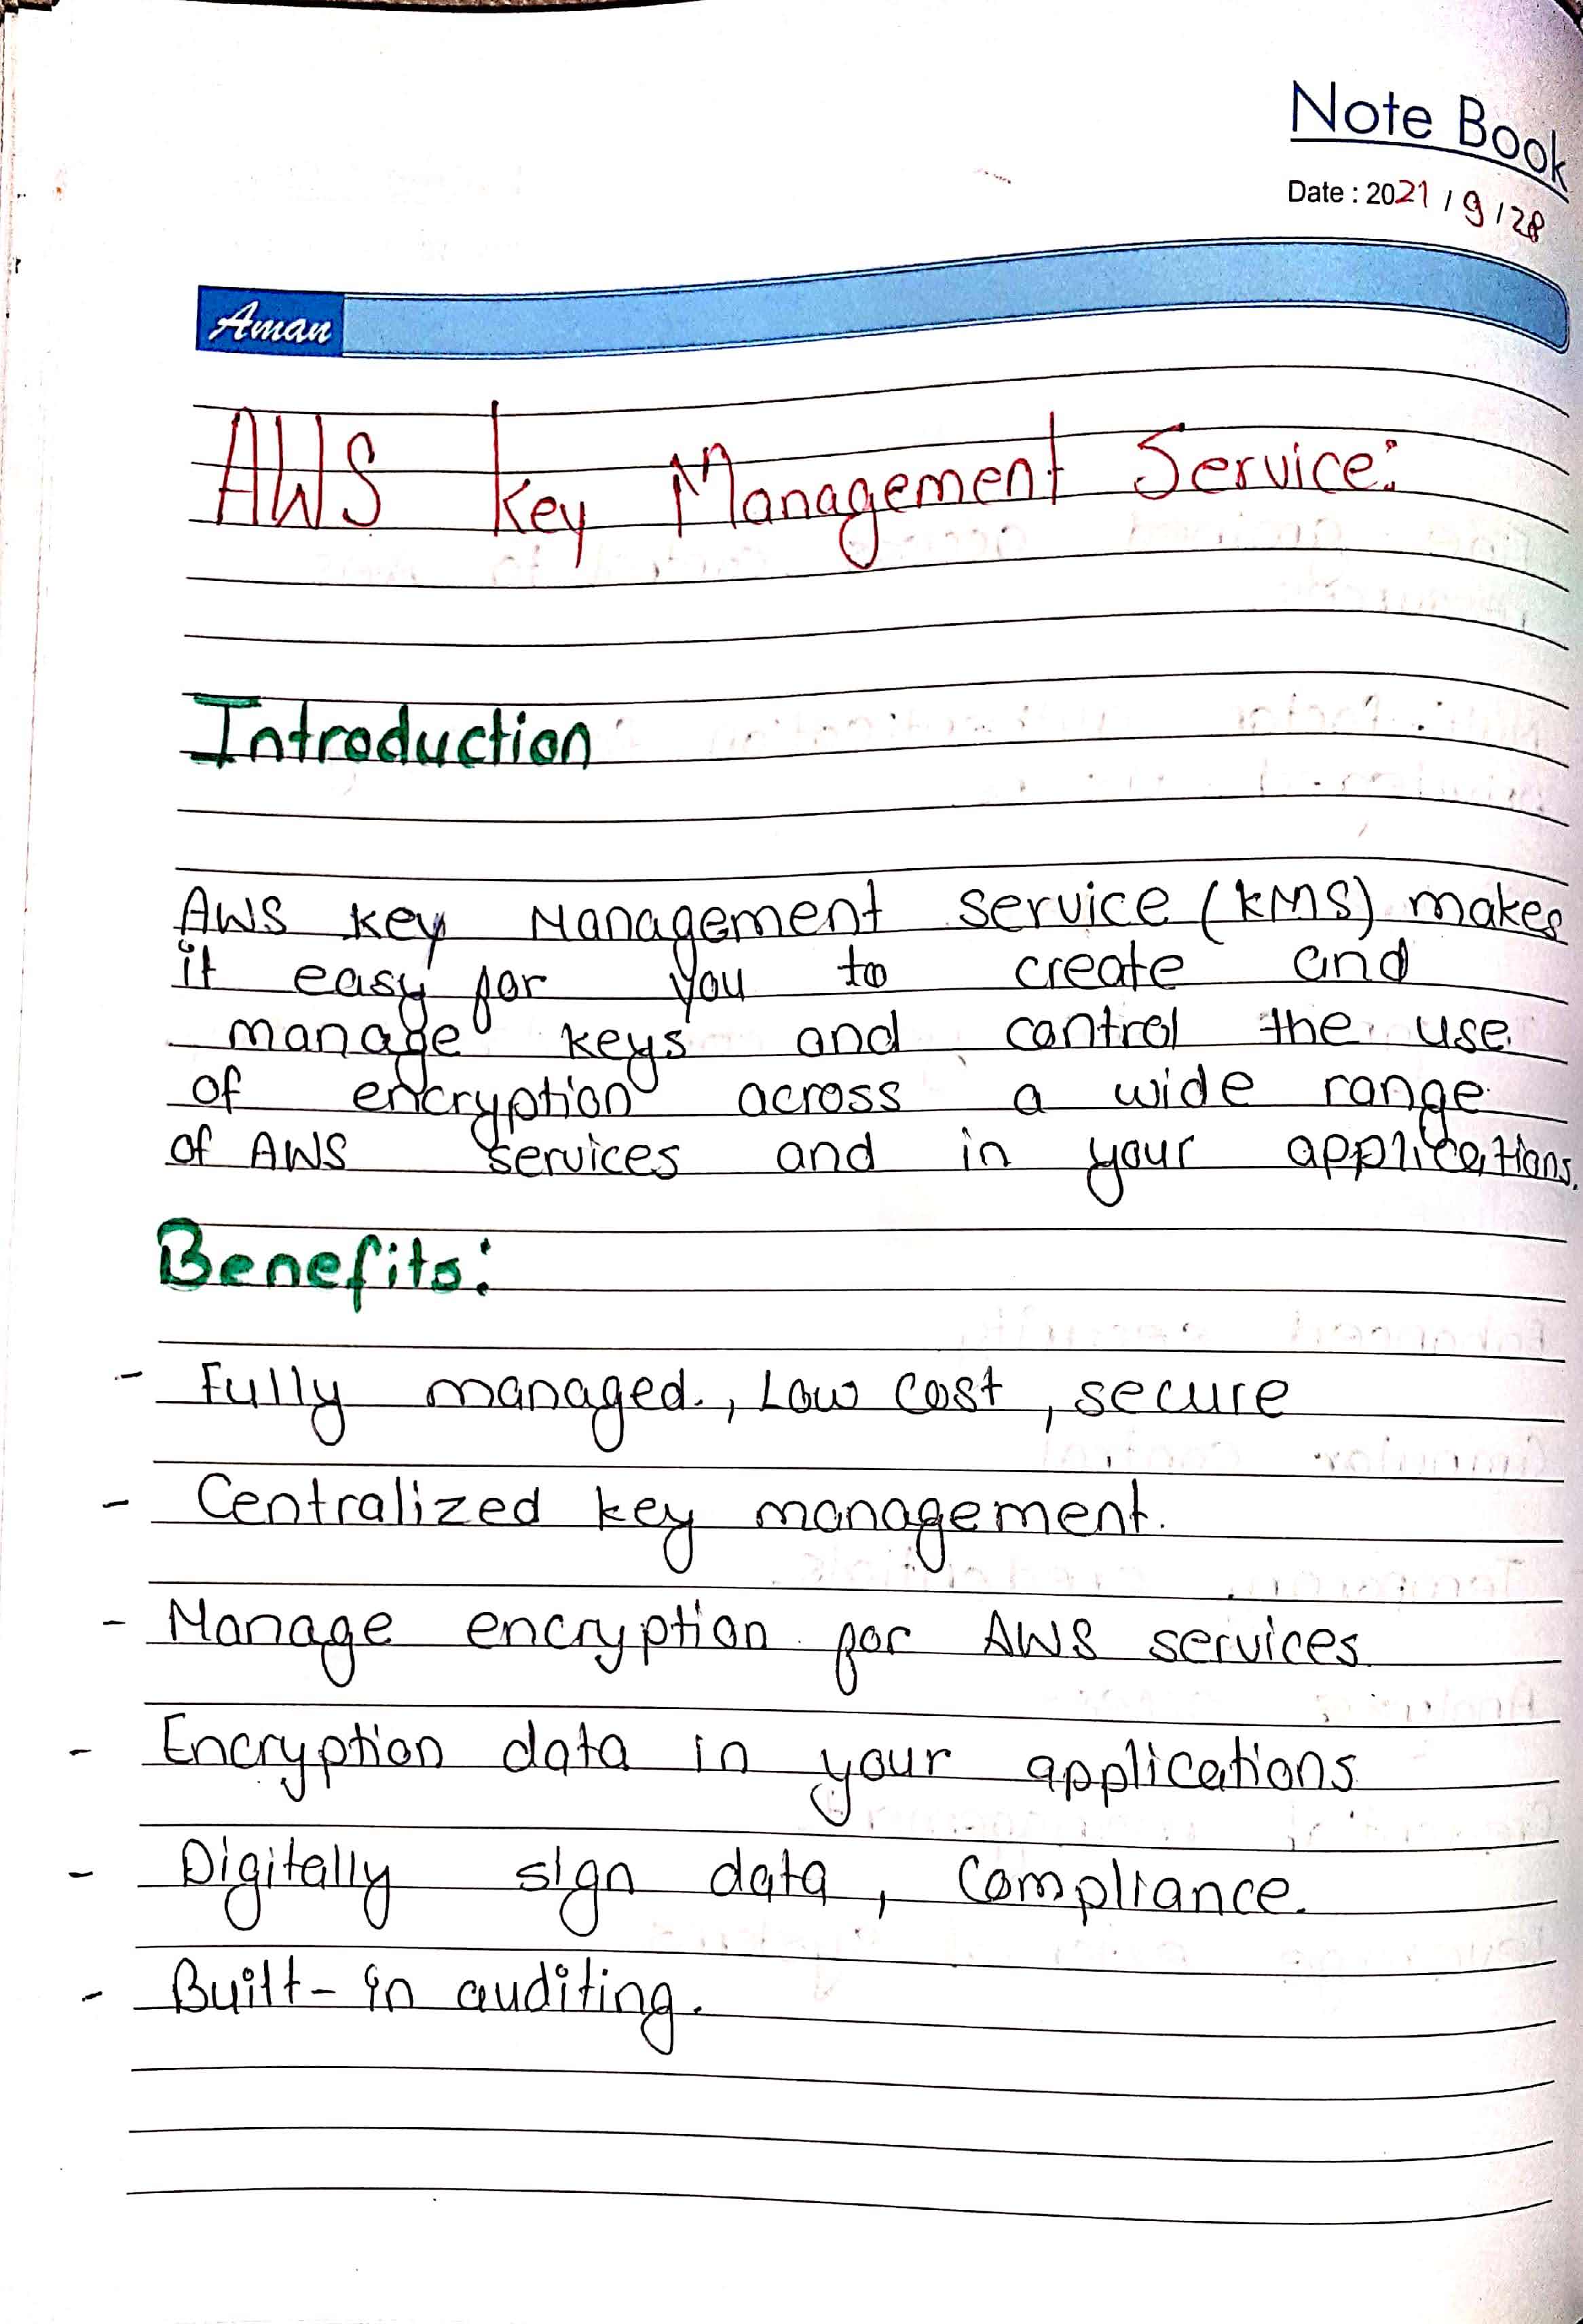 Note Book
Date : 2021 / 9 / 28
Aman
AWS Key Management Service:
Introduction
AWS key Management service (KMS) makes
it easy for you to create and
manage keys and control the use
of encryption across a wide range
of AWS services and in your applications.
Benefits:
- Fully managed, Low cost, secure
- Centralized key management.
- Manage encryption for AWS services
- Encryption data in your applications
- Digitally sign data, Compliance.
- Built-in auditing.